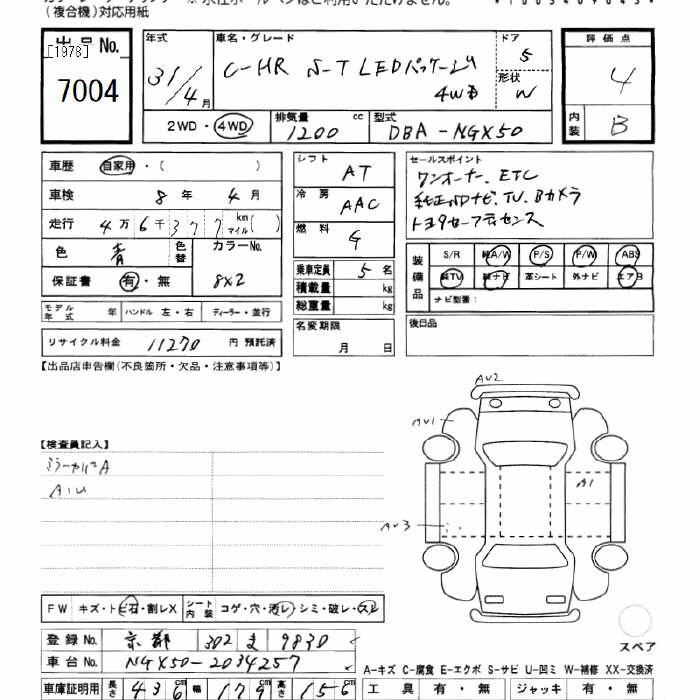 (複合機)対応用紙
出品No.
[1978]
7004
年式
31/4月
車名・グレード
C-HR S-T LEDパッケージ
4WD
ドア
5
形状
W
2WD・4WD
排気量
1200 cc
型式
DBA-NGX50
評価点
4
内装
B
車歴 自家用・( )
車検 8年 4月
走行 4万6千377 km マイル( )
色 青 色替
カラーNo.
8X2
保証書 有・無
モデル年式 年 ハンドル 左・右 ディーラー・並行
リサイクル料金 11270 円 預託済
シフト AT
冷房 AAC
燃料 G
乗車定員 5名
積載量 kg
総重量 kg
名変期限
月 日
セールスポイント
ワンオーナー、ETC
純正SDナビ、TV、Bカメラ
トヨタセーフティセンス
装備品
S/R 純A/W P/S P/W ABS
純TV 純ナビ 革シート 外ナビ エアB
ナビ型番:
後日品
【出品店申告欄(不良箇所・欠品・注意事項等)】
【検査員記入】
ミラーカバーA
A・U
AU2
AU1
A1
AU3
FW キズ・トビ石・割レX シート内装 コゲ・穴・汚レ・シミ・破レ・スレ
登録No. 京都 302 ま 9830
車台No. NGX50-2034257
車庫証明用 長さ 436cm 幅 179cm 高さ 156
スペア
A-キズ C-腐食 E-エクボ S-サビ U-凹ミ W-補修 XX-交換済
工具 有・無 ジャッキ 有・無